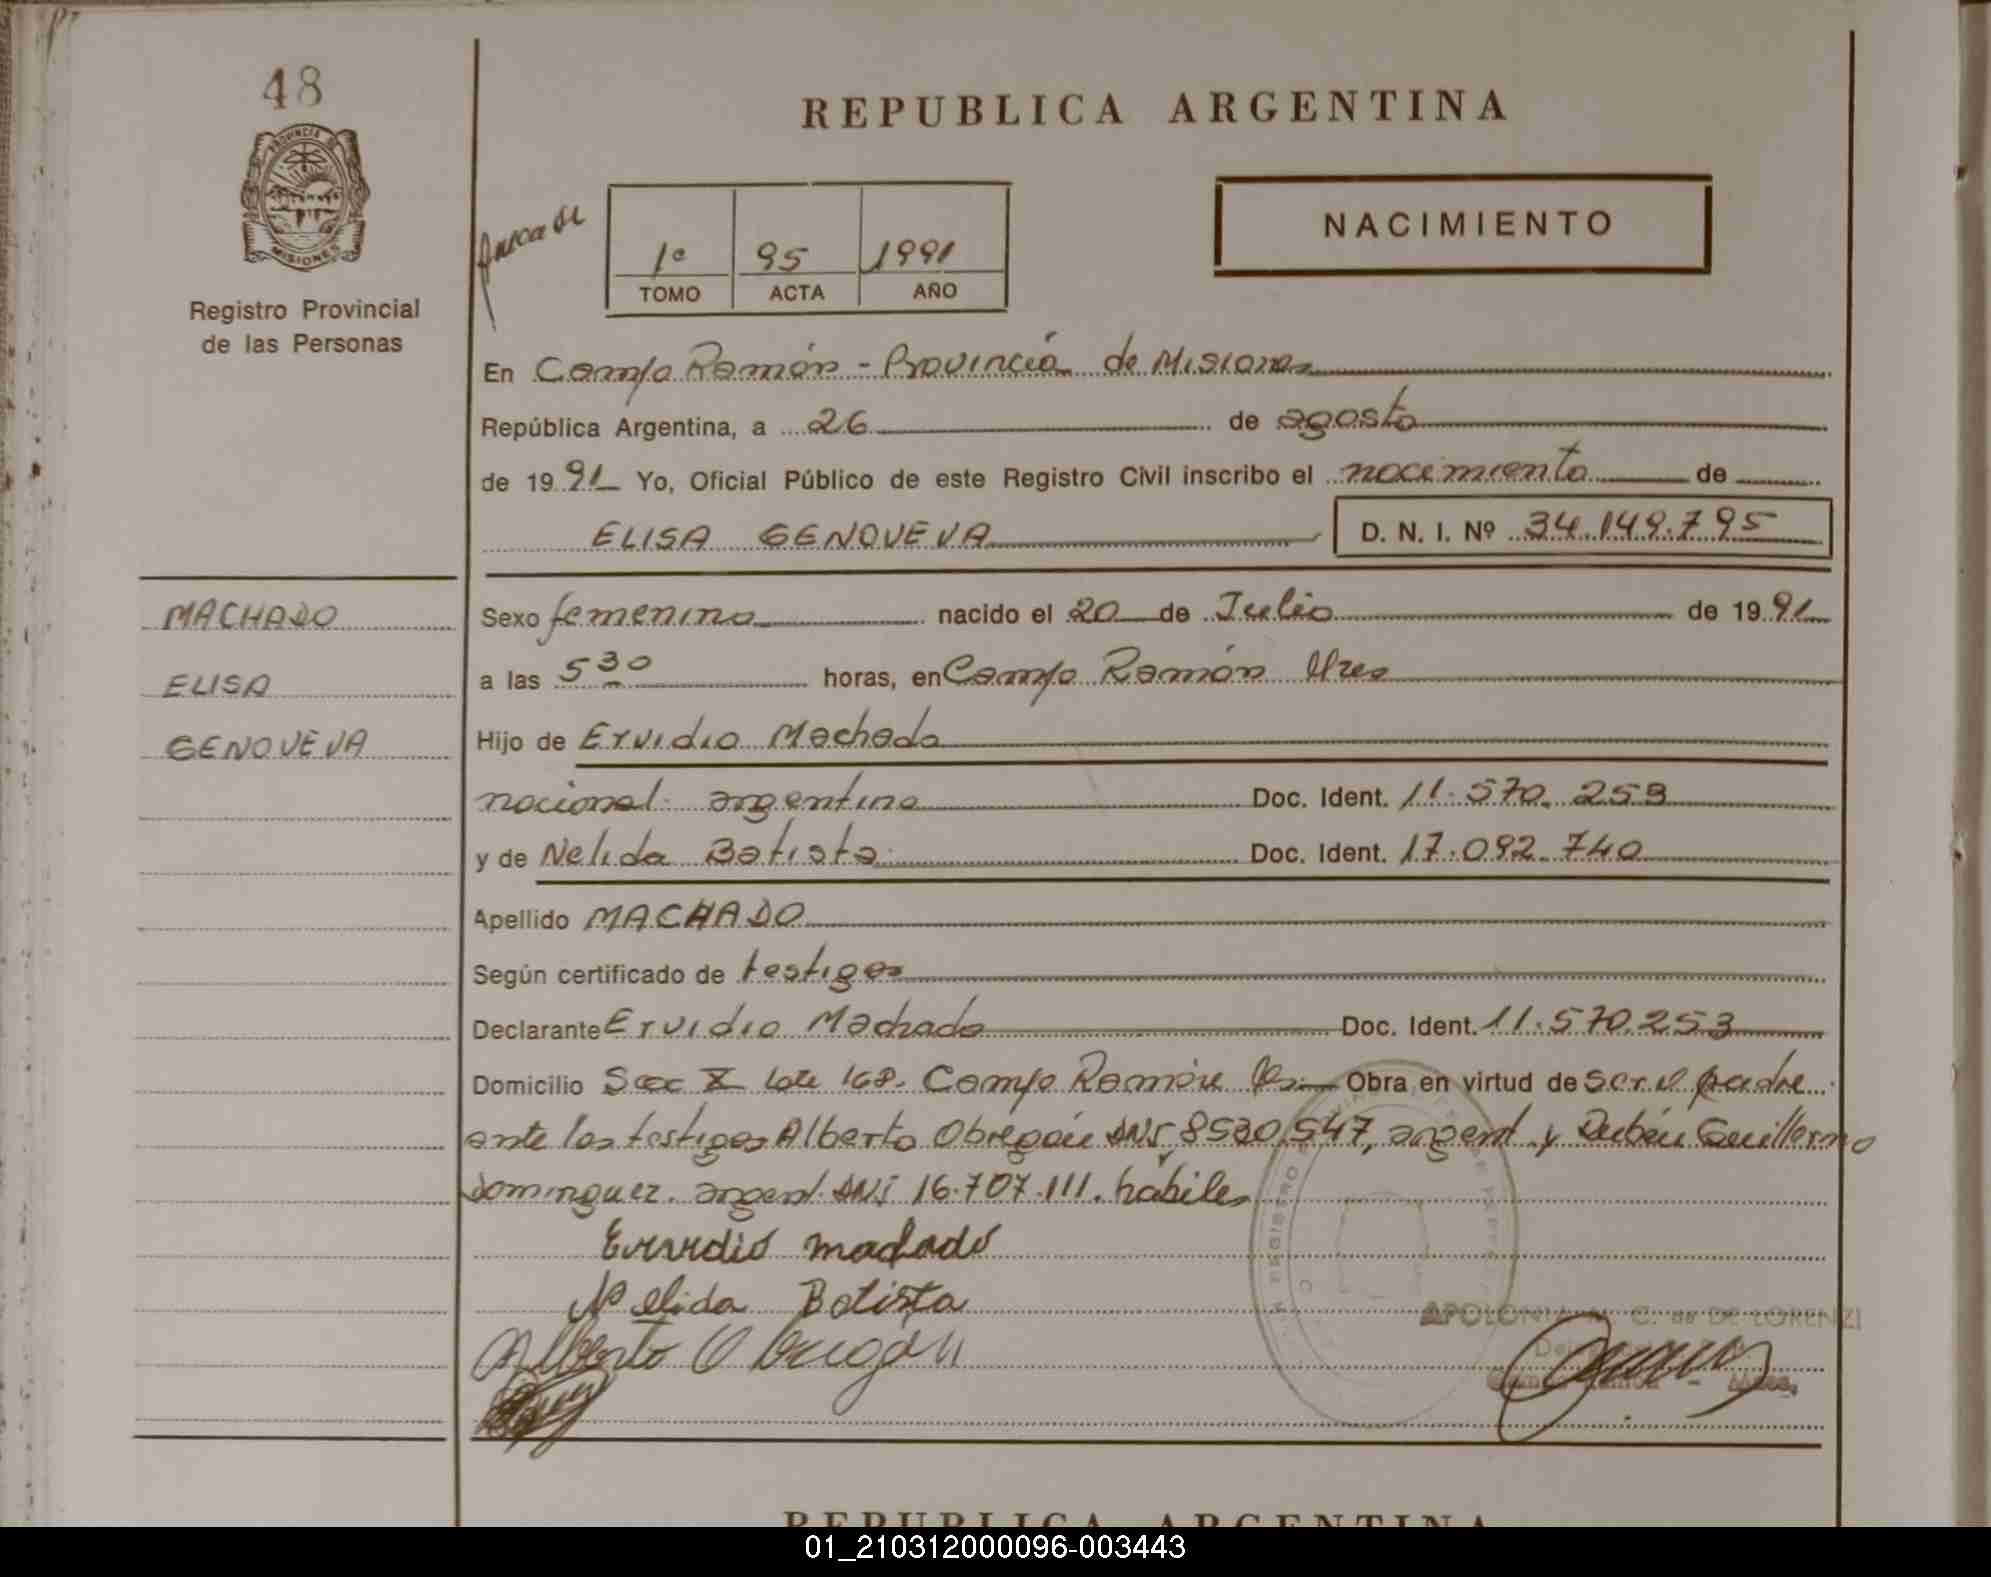 48
PROVINCIA DE
MISIONES
Registro Provincial
de las Personas
REPUBLICA ARGENTINA
1º 95 1991
TOMO ACTA AÑO
NACIMIENTO
En Campo Ramón - Provincia de Misiones
República Argentina, a 26 de agosto
de 1991 Yo, Oficial Público de este Registro Civil inscribo el nacimiento de
ELISA GENOVEVA D. N. I. Nº 34.149.795
MACHADO
ELISA
GENOVEVA
Sexo femenino nacido el 20 de Julio de 1991
a las 5 30 horas, en Campo Ramón Mnes
Hijo de Ervidio Machado
nacional. argentina Doc. Ident. 11.570.253
y de Nelida Batista Doc. Ident. 17.092.740
Apellido MACHADO
Según certificado de testigos
Declarante Ervidio Machado Doc. Ident. 11.570.253
Domicilio Secc X Lote 168. Campo Ramón Obra en virtud de ser el padre
ante los testigos Alberto Obregón DNI 8530547, argent y Rubén Guillermo
Dominguez. argent. DNI 16.707.111. hábiles
Ervidio machado
Nelida Batista
Alberto Obregón
APOLONIA M. C. de DE LORENZI
REPUBLICA ARGENTINA
01_210312000096-003443